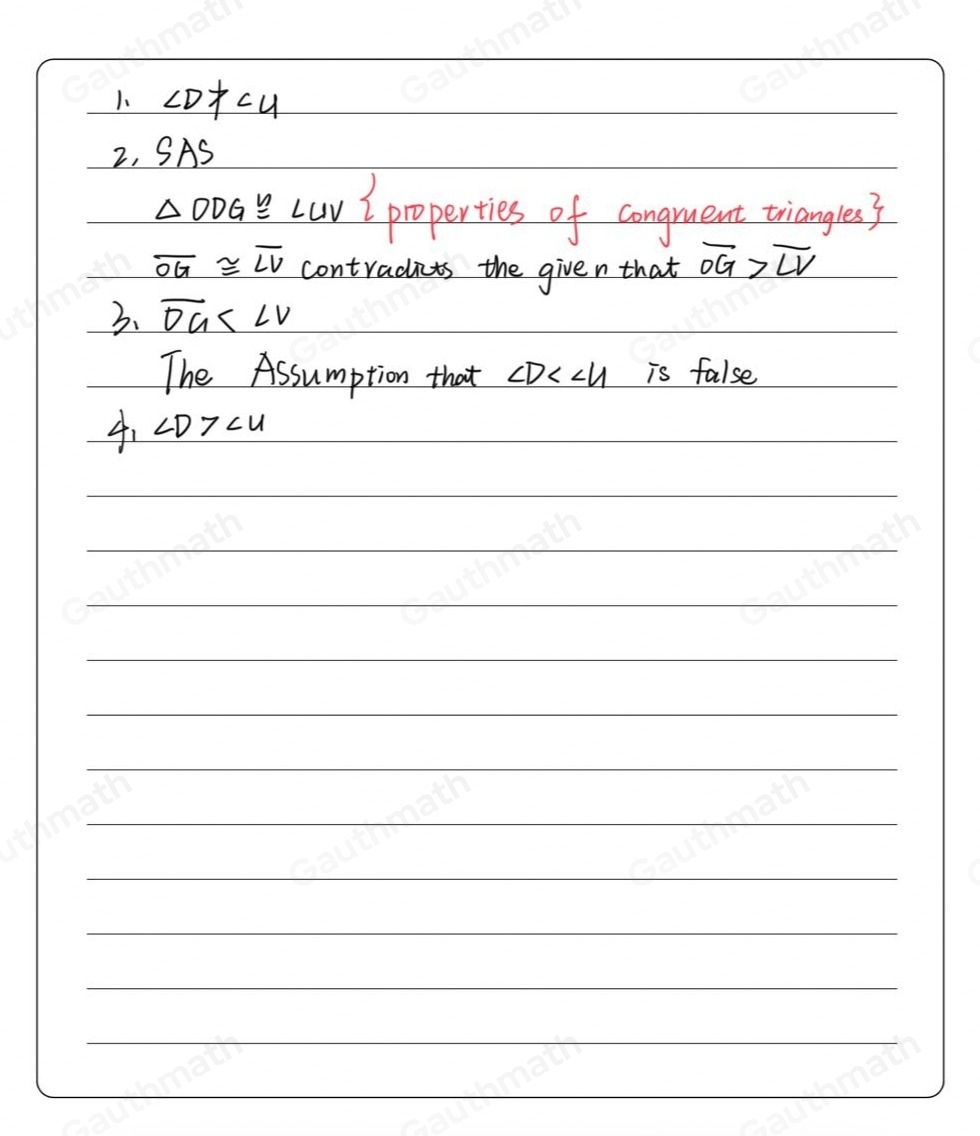 1. ∠D≯∠U
2, SAS
△ODG ≅ LUV {properties of congruent triangles}
OG ≅ LV contradicts the given that OG > LV
3. DG < LV
The Assumption that ∠D<∠U is false
4, ∠D>∠U
Gauthmath